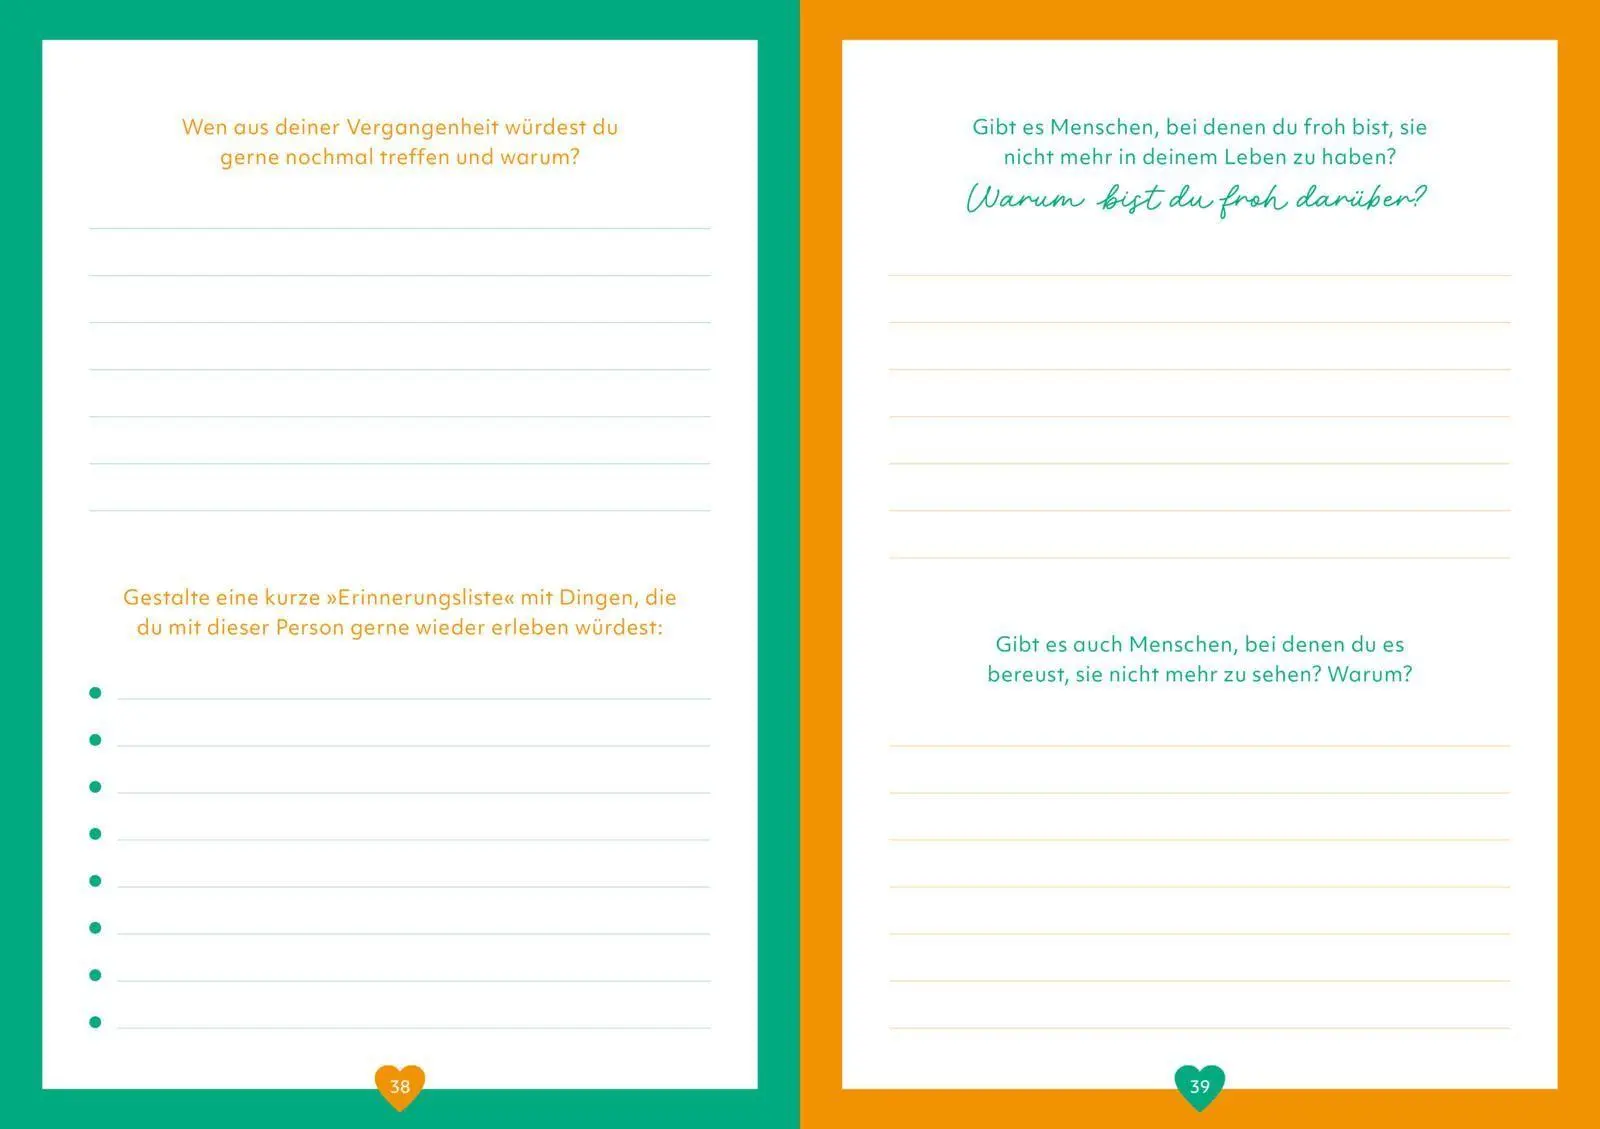 Wen aus deiner Vergangenheit würdest du
gerne nochmal treffen und warum?
Gestalte eine kurze »Erinnerungsliste« mit Dingen, die
du mit dieser Person gerne wieder erleben würdest:
38
Gibt es Menschen, bei denen du froh bist, sie
nicht mehr in deinem Leben zu haben?
Warum bist du froh darüber?
Gibt es auch Menschen, bei denen du es
bereust, sie nicht mehr zu sehen? Warum?
39